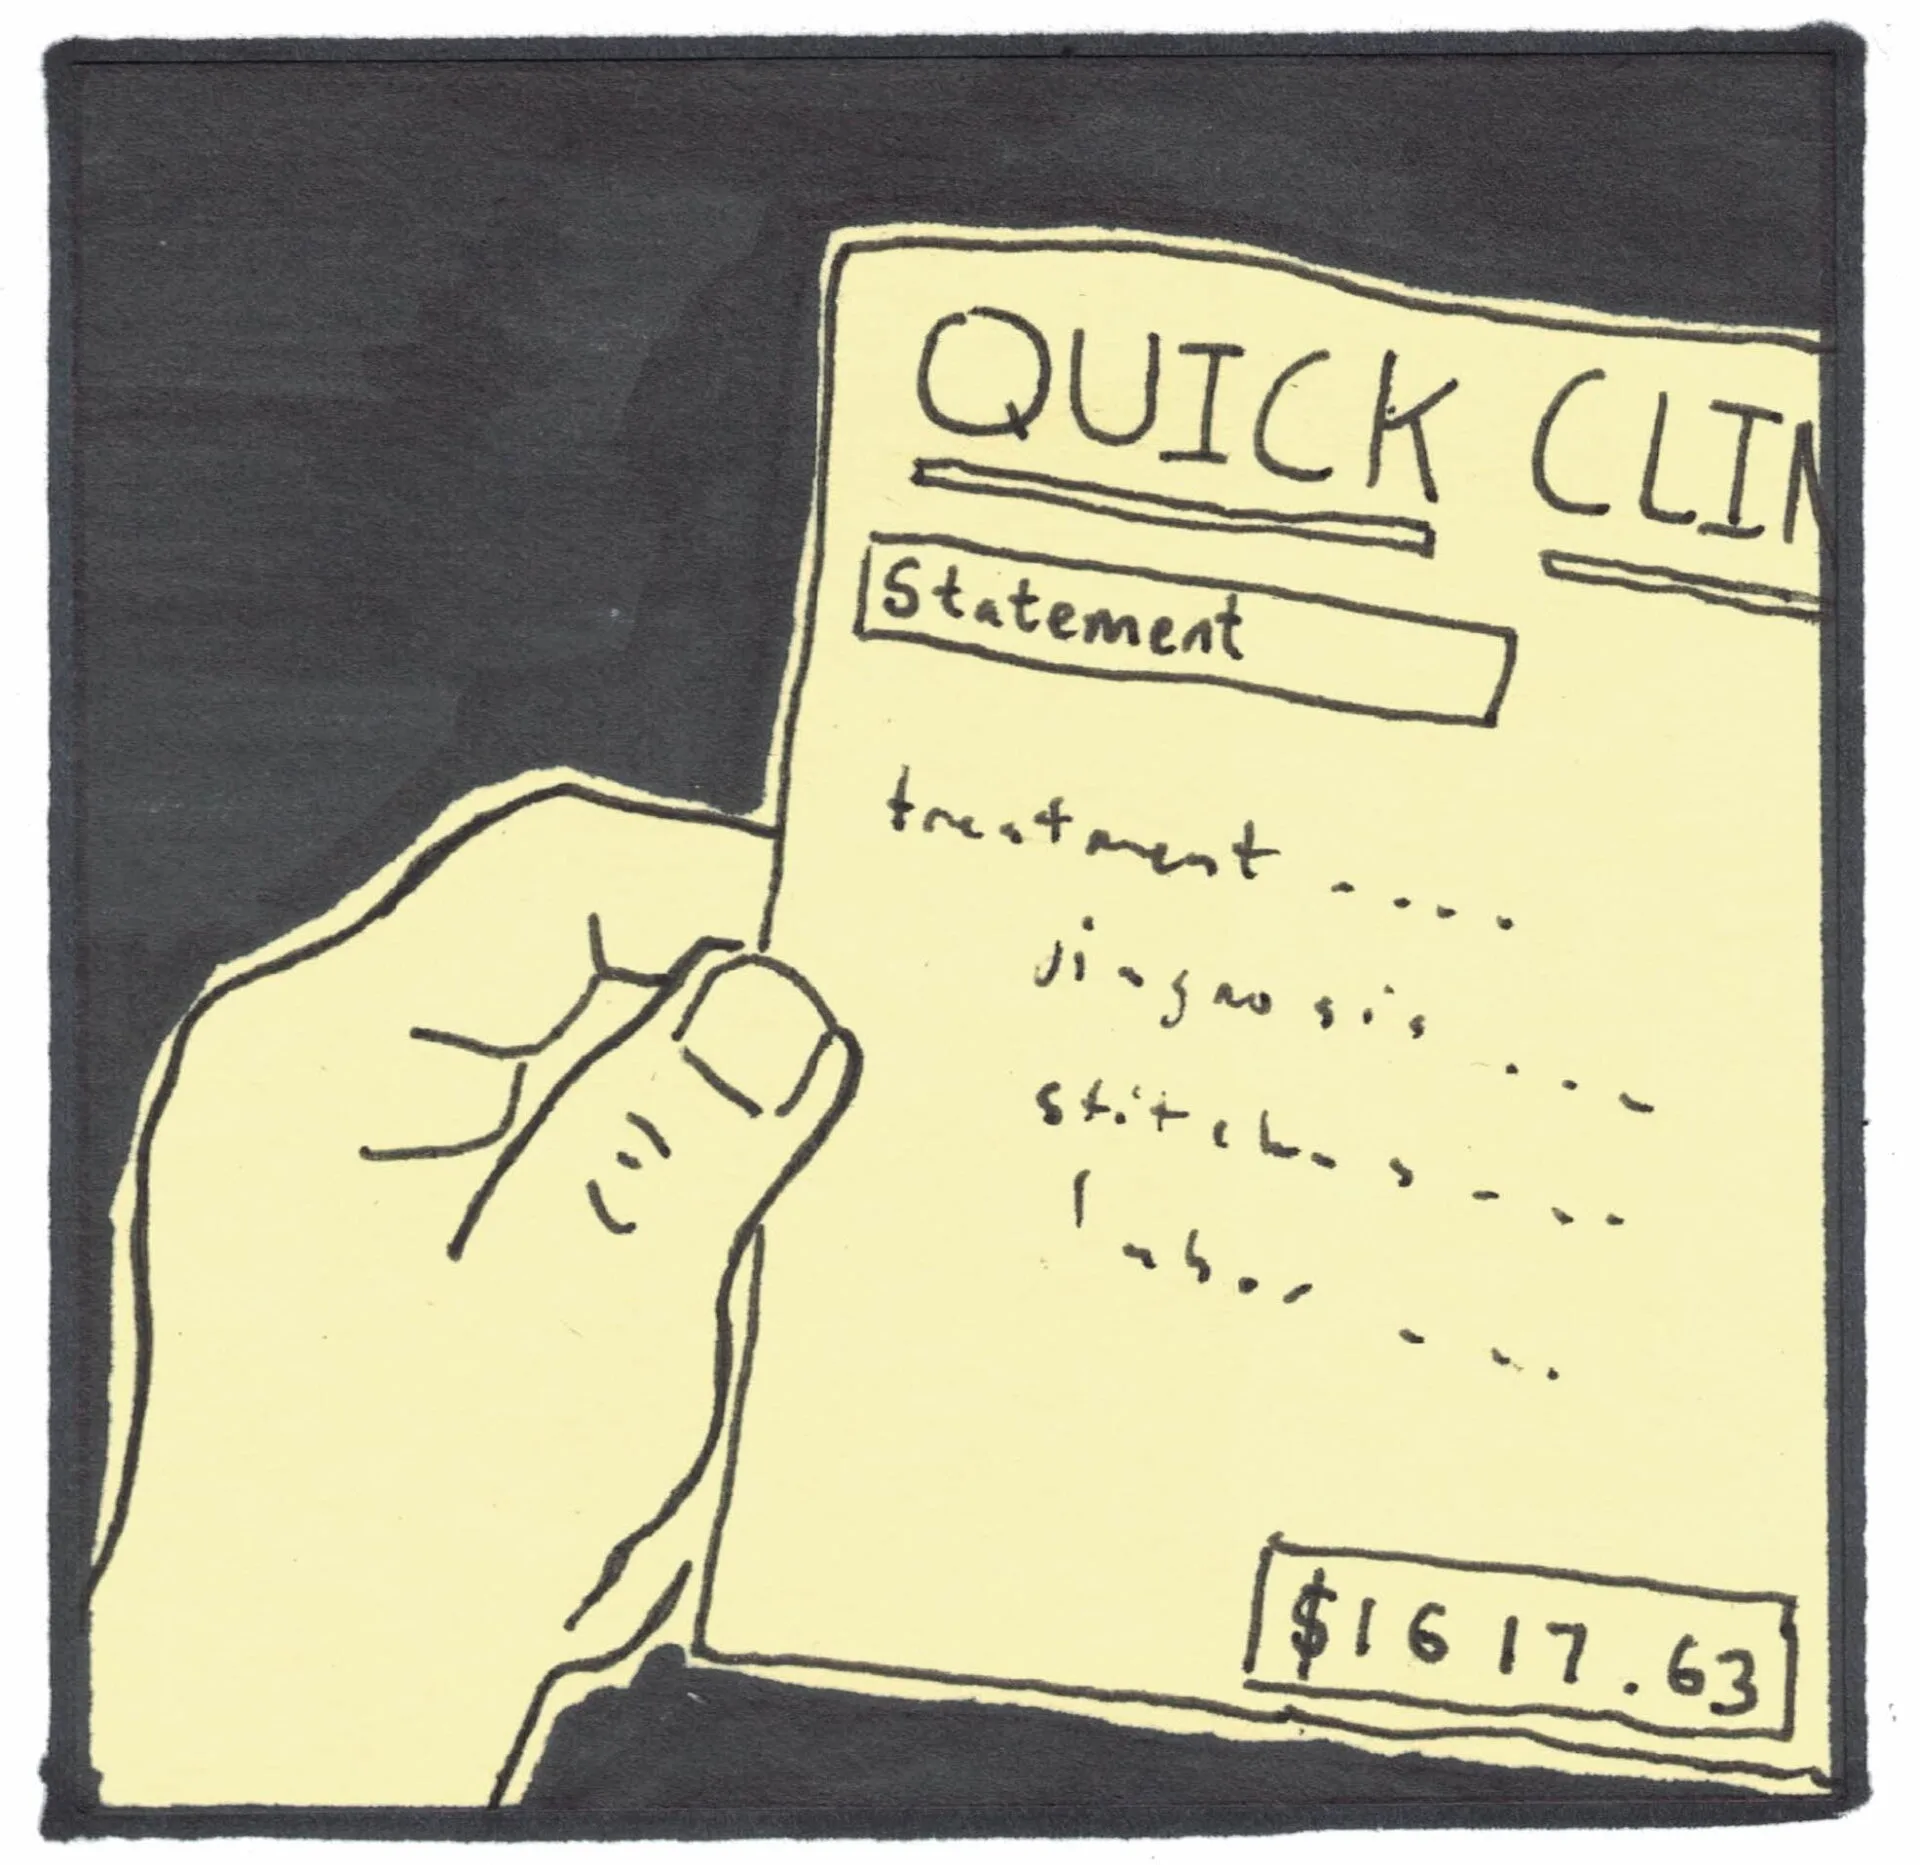 QUICK CLIN
Statement
treatment ....
diagnosis ...
stitches ...
labor ...
$1617.63